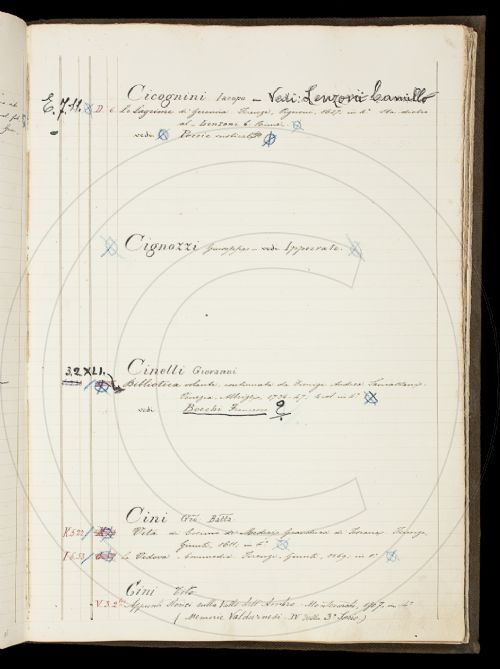 Cicognini Iacopo – Vedi: Lenzoni Camillo
E. 7. 11. D 6 Le Lagrime di Geremia. Firenze, Pignoni, 1627. in 4°
al – Lenzoni C.
vedi Poesie rusticali
Cignozzi Giuseppe – vedi Ippocrate.
Cinelli Giovanni
32 XLI. Biblioteca volante, continuata da Dionigi Andrea Sancassani.
Venezia, Albrizzi, 1734-47. 4 vol. in 4°
vedi Bocchi Francesco ?
Cini Gio. Batta
K 5 22 Vita di Cosimo de Medici Granduca di Toscana. Firenze,
Giunti, 1611. in 4°
I. 6. 53 La Vedova. Commedia. Firenze, Giunti, 1569. in 8°
Cini Tito
V. 3. 2 Appunti storici sulla Valle dell'Arbia. 1907. in 4°
( Memorie Valdarnesi. IV della 3ª Serie.)